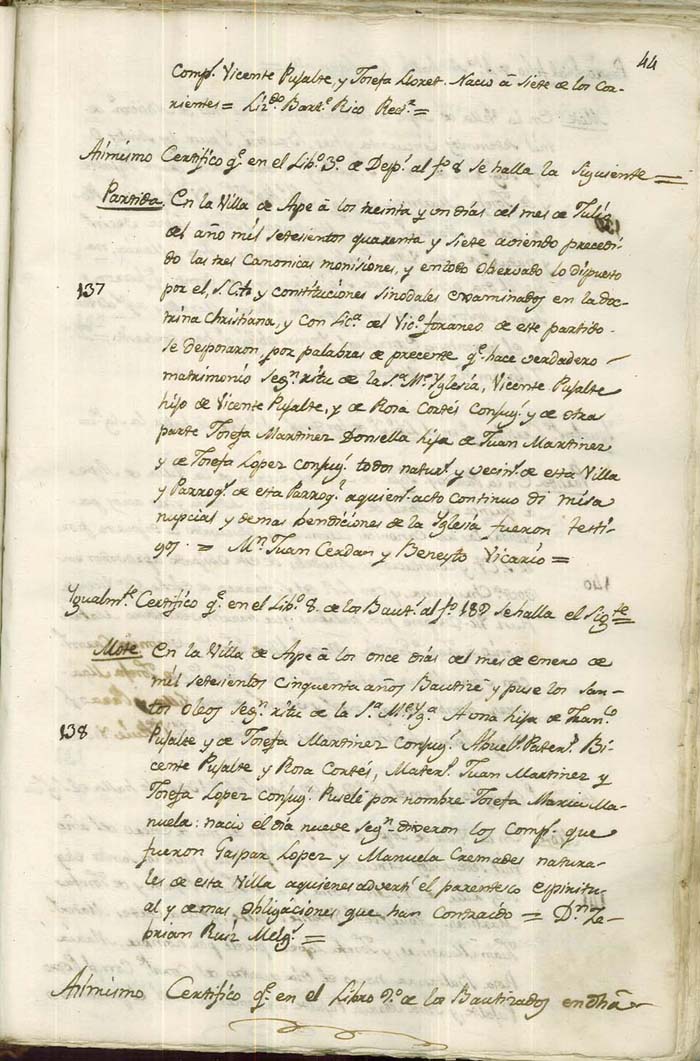 44
Comp.s Vicente Pujalte, y Josefa Lloret. Nacio â Siete de los Co-
rrientes = Liz.do Bart.e Rico Rec.r =
Asimismo Certifico q.e en el Lib.o 3.o de Desp.s al f.o 8 se halla la Siguiente =
Partida En la Villa de Aspe â los treinta y un dias del mes de Julio
del año mil setesientos quarenta y siete aviendo precedi-
do las tres Canonicas monisiones, y en todo observado lo dispuesto
137
por el S. C.to y constituciones sinodales examinados en la doc-
trina Christiana, y con Lic.a del Vic.o foraneo de este partido
se desposaron, por palabras de precente q.e hace verdadero
matrimonio seg.n ritu de la S.ta M.e Yglesia, Vicente Pujalte
hijo de Vicente Pujalte, y de Rosa Cortés Conjug.s y de otra
parte Josefa Martinez Donsella hija de Juan Martinez
y de Josefa Lopez conjug.s todos natur.s y vecin.s de esta Villa
y Parroq.s de esta Parroq.a aquien.s acto continuo di misa
nupcial y demas bendiciones de la Yglesia fueron testi-
gos = M.n Juan Cerdan y Beneyto Vicario =
Ygualm.te Certifico q.e en el Lib.o 8. de los Baut.s al f.o 182 se halla el Sig.te =
Mote En la Villa de Aspe â los once dias del mes de enero de
mil setesientos cinquenta años Bautizé y puse los San-
tos Oleos seg.n ritu de la S.ta M.e Yg.a A una hija de Fran.co
138
Pujalte y de Josefa Martinez Conjug.s Abuel.s Pater.s Bi-
cente Pujalte y Rosa Cortés, Mater.s Juan Martinez y
Josefa Lopez conjug.s Pusele por nombre Josefa Maria Ma-
nuela: nacio el dia nueve seg.n dixeron los Comp.s que
fueron Gaspar Lopez y Manuela Cremades natura-
les de esta Villa aquienes advertí el parentesco espiritu-
al y demas obligaciones que han contraido = D.n Ze-
brian Ruiz Melg.s =
Asimismo Certifico q.e en el Libro 9.o de los Bautizados en dha